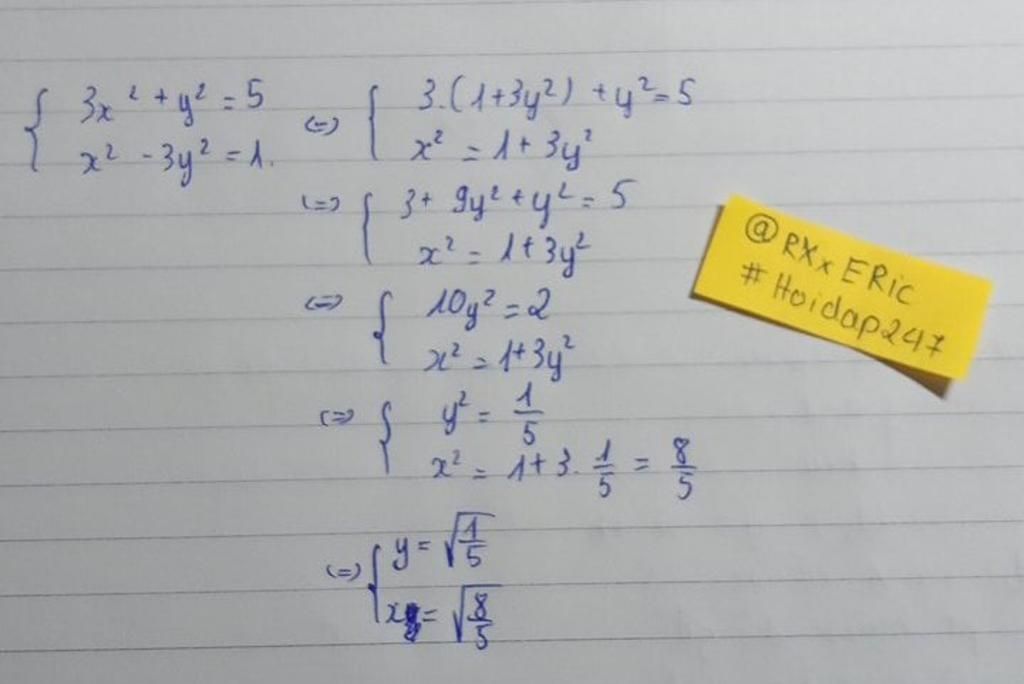 { 3x² + y² = 5 (=) { 3.(1+3y²) + y² = 5
x² - 3y² = 1. x² = 1 + 3y²
(=) { 3 + 9y² + y² = 5
x² = 1 + 3y²
(=) { 10y² = 2
x² = 1 + 3y²
(=) { y² = 1/5
x² = 1 + 3. 1/5 = 8/5
(=) { y = √(1/5)
x = √(8/5)
@RXxERic
#Hoidap247